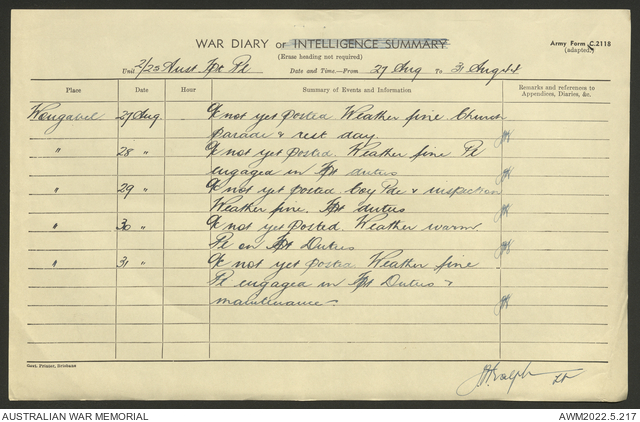 WAR DIARY or INTELLIGENCE SUMMARY
(Erase heading not required)
Army Form C.2118
(adapted)
Unit 2/25 Aust Tpt Pl Date and Time.—From 27 Aug To 31 Aug
Place Date Hour Summary of Events and Information Remarks and references to
Appendices, Diaries, &c.
Wongabel 27 Aug. not yet posted Weather fine. Church
parade & rest day.
" 28 " not yet posted. Weather fine Pl
engaged in Tpt duties
" 29 " not yet posted. Coy & inspection
Weather fine. Tpt duties
" 30 " not yet posted. Weather warm.
Pl on Tpt Duties
" 31 " not yet posted. Weather fine
Pl engaged in Tpt Duties &
maintenance
Govt. Printer, Brisbane
Lt
AUSTRALIAN WAR MEMORIAL
AWM2022.5.217